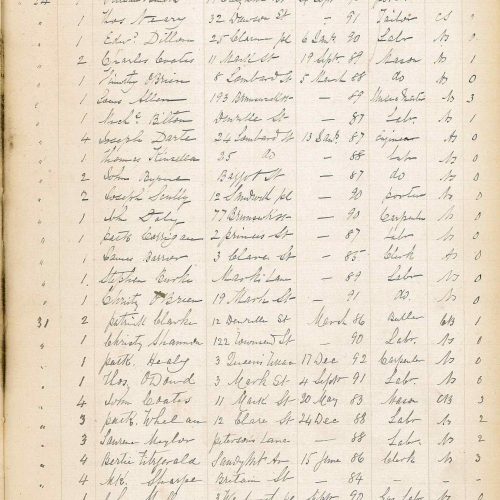 1 Thos Neary 32 Dawson St — 91 Tailor CS 0
1 Edwd Dillon 25 Clarence pl 6 Jan 90 Labr No 0
2 Charles Coates 11 Mark St 19 Sept 89 Mason No 1
1 Timothy O'Brien 8 Lombard St 5 March 88 do No 0
1 193 Brunswick St — 89 No 3
1 Michl Bilton Denzille St — 87 Labr No 1
4 Joseph Darte 24 Lombard St 13 Jany 87 No 0
1 Thomas Kinsella 25 do — 88 Labr No 0
2 John Byrne Baggot St — 87 do No 0
2 Joseph Scully 12 Sandwith pl — 90 porter No 0
1 Jno Daly 77 Brunswick St — 90 Carpenter No 0
1 patk Corrigan 2 princes St — 87 Labr No 0
1 James 3 Clare St — 85 Clerk No 0
1 Stephen Burk Mark Lane — 89 Labr No 0
1 Christy O'Brien 19 Mark St — 91 do No 0
31 2 patrick Clarke 12 Denzille St March 86 Butler 1
1 Christy Shannon 122 Townsend St — 90 Labr No 0
1 patk. Healy 3 Queens 17 Dec 92 Carpenter No 0
1 Thos O'Dowd 3 Mark St 4 Sept 91 Labr No 0
4 John Coates 11 Mark St 20 May 83 Mason 3
3 patk. Whelan 12 Clare St 24 Dec 88 Labr No 2
3 Laurence Naylor petersons Lane — 88 Labr No 2
4 Bertie Fitzgerald 15 June 86 Clerk No 3
4 Mr. Sharpe Britain St — 84 — —